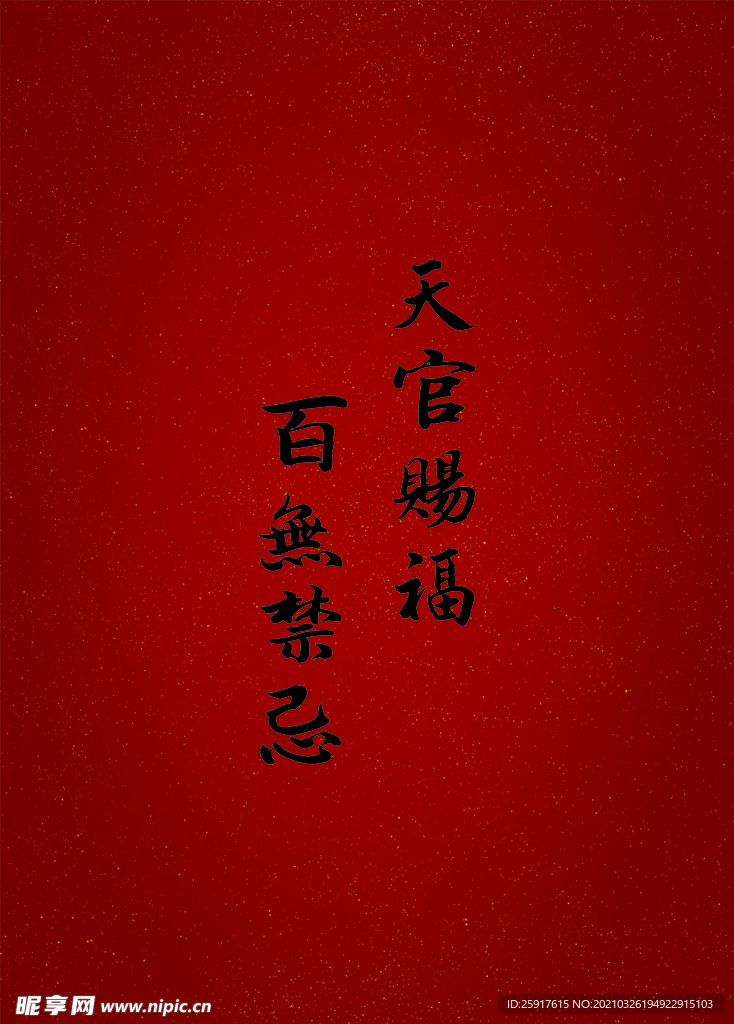 天官賜福
百無禁忌
昵享网 www.nipic.cn
ID:25917615 NO:20210326194922915103